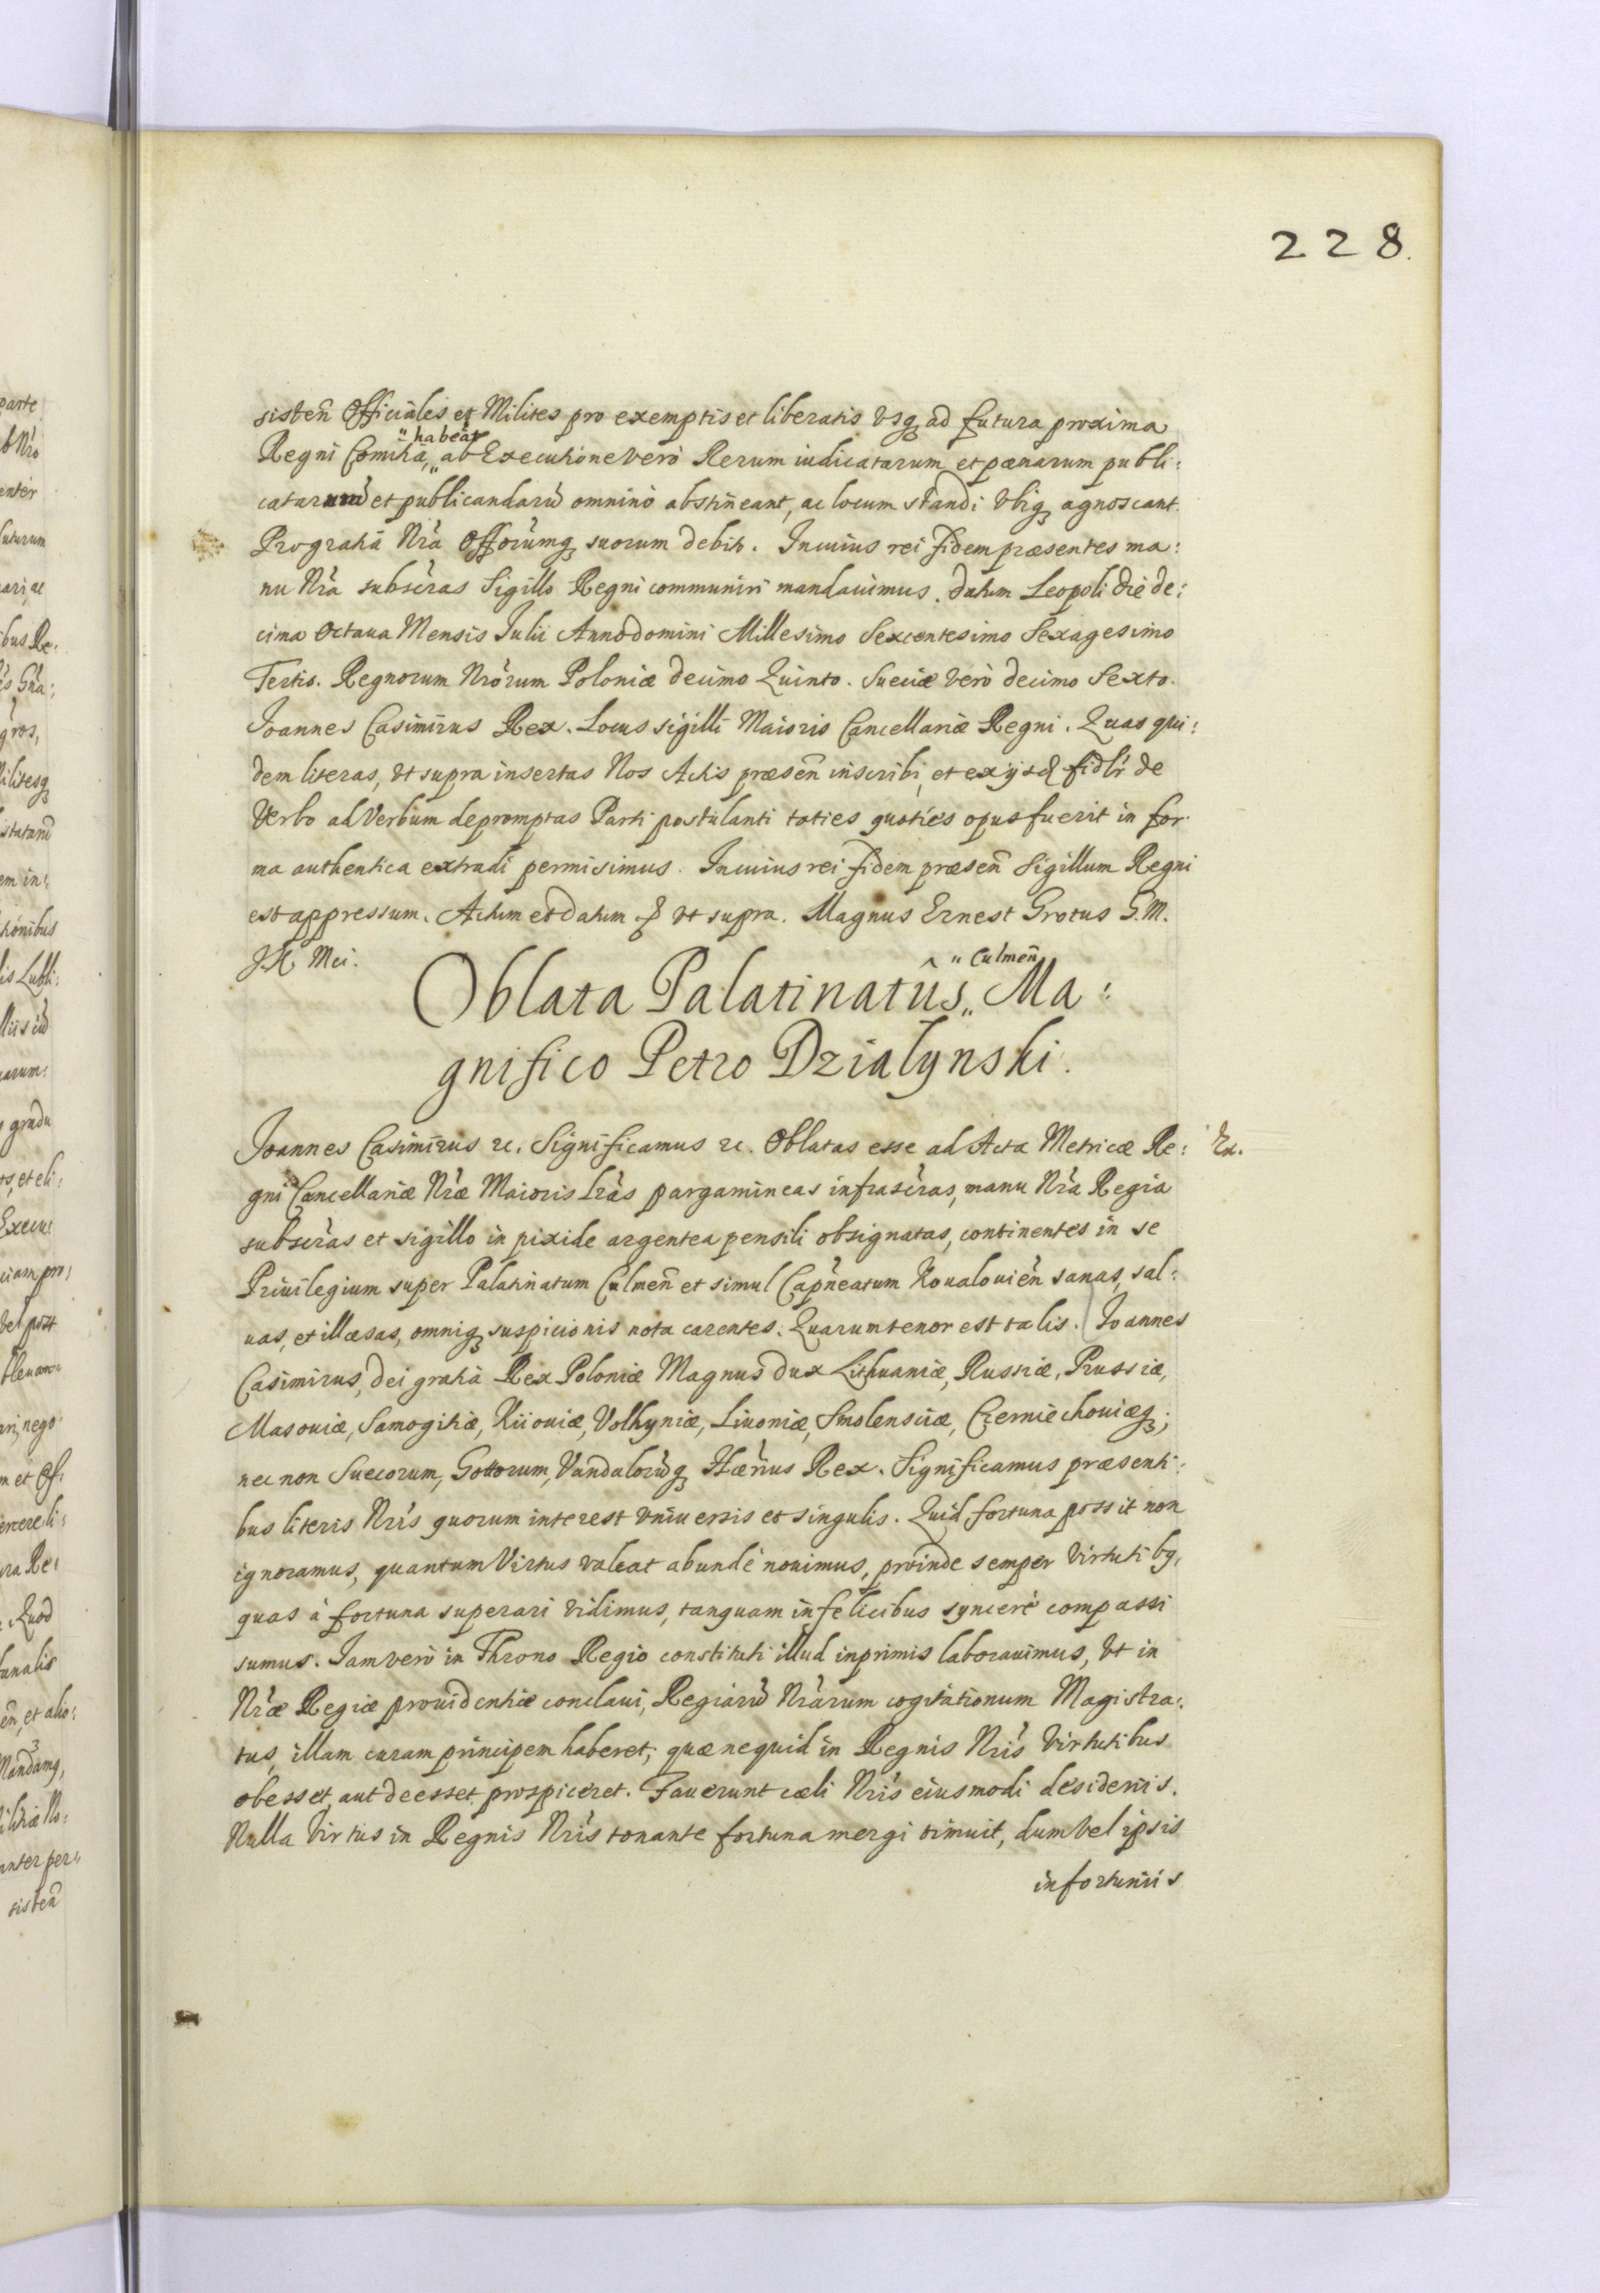 228.
sisten̄ Officiales et Milites pro exemptis et liberatis vsq̨ ad futura proxima
Regni Comitia, „ habeāt „ ab Executione verò Rerum iudicatarum et pœnarum publi:
catarum et publicandarū omninò abstineant, ac locum standi vbiq̨ agnoscant.
Pro gratiâ Nr̃a Offor̃umq̨ suorum debito. In cuius rei fidem præsentes ma:
nu Nr̃a subscr̃as Sigillo Regni communiri mandauimus. Datum Leopoli die de:
cima Octaua Mensis Julii Anno domini Millesimo Sexcentesimo Sexagesimo
Tertio. Regnorum Nr̃orum Poloniæ decimo Quinto. Sueciæ verò decimo Sexto.
Joannes Casimirus Rex. Locus sigilli Maioris Cancellariæ Regni. Quas qui:
dem literas, vt supra insertas Nos Actis præsen̄ inscribi, et ex ijsd fidlr̃ de
Verbo ad Verbum depromptas Parti postulanti toties quoties opus fuerit in for
ma authentica extradi permisimus. In cuius rei fidem præsen̄ Sigillum Regni
est appressum. Actum et datum vt supra. Magnus Ernest Grotus S.M.
Mci.
Oblata Palatinatûs „ Culmen̄ „ Ma:
gnifico Petro Dzialynski.
Joannes Casimirus &c. Significamus &c. Oblatas esse ad Acta Metricæ Re: Ex.
gni Cancellariæ Nr̃æ Maioris Lr̃as pargamineas infrascr̃as, manu Nr̃a Regia
subscr̃as et sigillo in pixide argentea pensili obsignatas, continentes in se
Priuilegium super Palatinatum Culmen̄ et simul Capn̄eatum Koualouien̄ sanas, sal:
uas, et illæsas, omniq̨ suspicionis nota carentes. Quarum tenor est talis. Joannes
Casimirus, dei gratiâ Rex Poloniæ Magnus dux Lithuaniæ, Russiæ, Prussiæ,
Masouiæ, Samogitiæ, Kiiouiæ, Volhyniæ, Liuoniæ, Smolensciæ, Czerniechouiæq̨;
nec non Suecorum, Gottorum, Vandalorūq̨ Hær̃ius Rex. Significamus præsenti:
bus literis Nr̃is quorum interest vniuersis et singulis. Quid fortuna possit non
ignoramus, quantum Virtus valeat abundè nouimus, proinde semper Virtutibq,
quas à fortuna superari vidimus, tanquam infelicibus syncerè compassi
sumus. Jam verò in Throno Regio constituti illud inprimis laborauimus, vt in
Nr̃æ Regiæ prouidentiæ conclaui, Regiarū Nr̃arum cogitationum Magistra:
tus, illam curam principem haberet; quæ nequid in Regnis Nr̃is Virtutibus
obesset, aut deesset prospiceret. Fauerunt cæli Nr̃is eiusmodi desideriis.
Nulla Virtus in Regnis Nr̃is tonante fortuna mergi timuit, dum vel ipsis
infortuniis